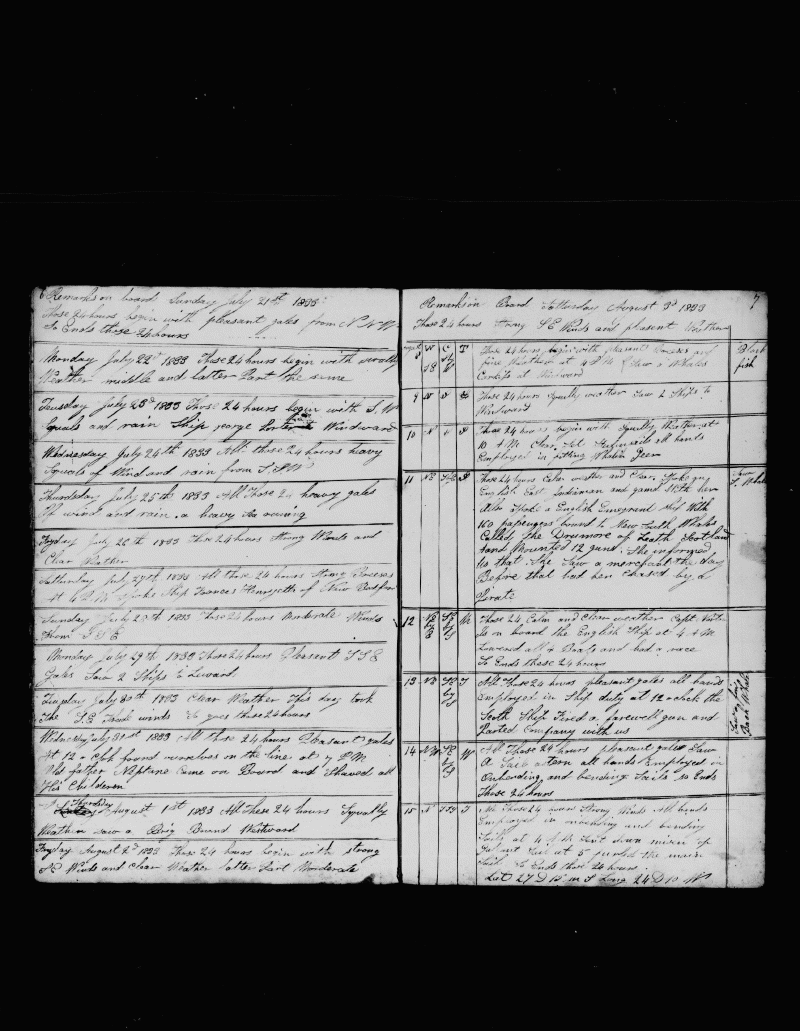 6 Remarks on board Sunday July 21st 1833
These 24 hours begin with pleasant gales from N W
So Ends these 24 hours
Monday July 22d 1833 These 24 hours begin with
Weather middle and latter Part the same
Teusday July 23d 1833 These 24 hours begun with S. W
Squals and rain Ship george Porter Windward
Wednesday July 24th 1833 All these 24 hours heavy
Squals of Wind and rain from
Thursday July 25th 1833 All These 24 heavy gales
Of wind and rain a heavy Sea runing
Fryday July 26th 1833 These 24 hours Strong Winds and
Clear Weather
Satturday July 27th 1833 All these 24 hours Strong Breeses
At 4 P.M Spoke Ship Frances Henryetta of New Bedford
Sunday July 28th 1833 These 24 hours Moderate Winds
From S S E
Monday July 29th 1833 These 24 hours Pleasant S S E
Gales Saw 2 Ships to Leward
Tuesday July 30th 1833 Clear Weather This day took
The S.E Trade winds So goes these 24 hours
Wednesday July 31st 1833 All these 24 hours Pleasant gales
At 12 o Clok found ourselves on the line at 7 P.M
Old father Neptune Came on Bourd and Shaved all
His Children
Thursday August 1st 1833 All These 24 hours Squally
Weather saw a Brig Bound Westward
Fryday August 2d 1833 These 24 hours begin with strong
Winds and Clear Weather latter Part Moderate
Remarks on Board Satturday August 3d 1833 7
These 24 hours Strong S E Winds and plesent Weather
W C T
8 These 24 hours begin with pleasant breeses and
fine Weather at 4 P M Saw a Whales
to Windward
Black
fish
9 These 24 hours Squally weather Saw 2 Ships to
Windward
10 N These 24 hours begin with Squally Weather at
10 A M Clear Set all hands
Employed in fitting Whalin Geer
11 NE These 24 hours Calm weather and Clear Spoke an
English East Indiaman and gamd With her
Allso Spoke a English Emigrant Ship With
160 passengers bound to New South Whales
Called the Dresmore of Leath Scotland
and Mounted 12 guns. She informed
us that She Saw a merchant the day
Before that had ben Chased by a
Pirate
Saw
S. Whale
12 NE by E SE by S W These 24 Calm and Clear weather Capt.
is on board the English Ship at 4 A M
Lowered all 4 Boats and had a race
So Ends these 24 hours
13 NE SE by S T All These 24 hours pleasant gales all hands
Employed in Ship duty at 12 o clock the
Scoth Ship Fired a farewell gun and
Parted Company with us
14 N W SE by S W All These 24 hours pleasant gales Saw
A Sail astern all hands Employed in
Unbending and bending Sails So Ends
These 24 hours
15 N SSE T These 24 hours Strong Winds All hands
Employed in unbending and bending
Sails at 4 P M Sent down mizen top
galant Sail at 5 furled the main
Sail So Ends these 24 hours
Lat 27 D 15 m S Long 24 D 10 W